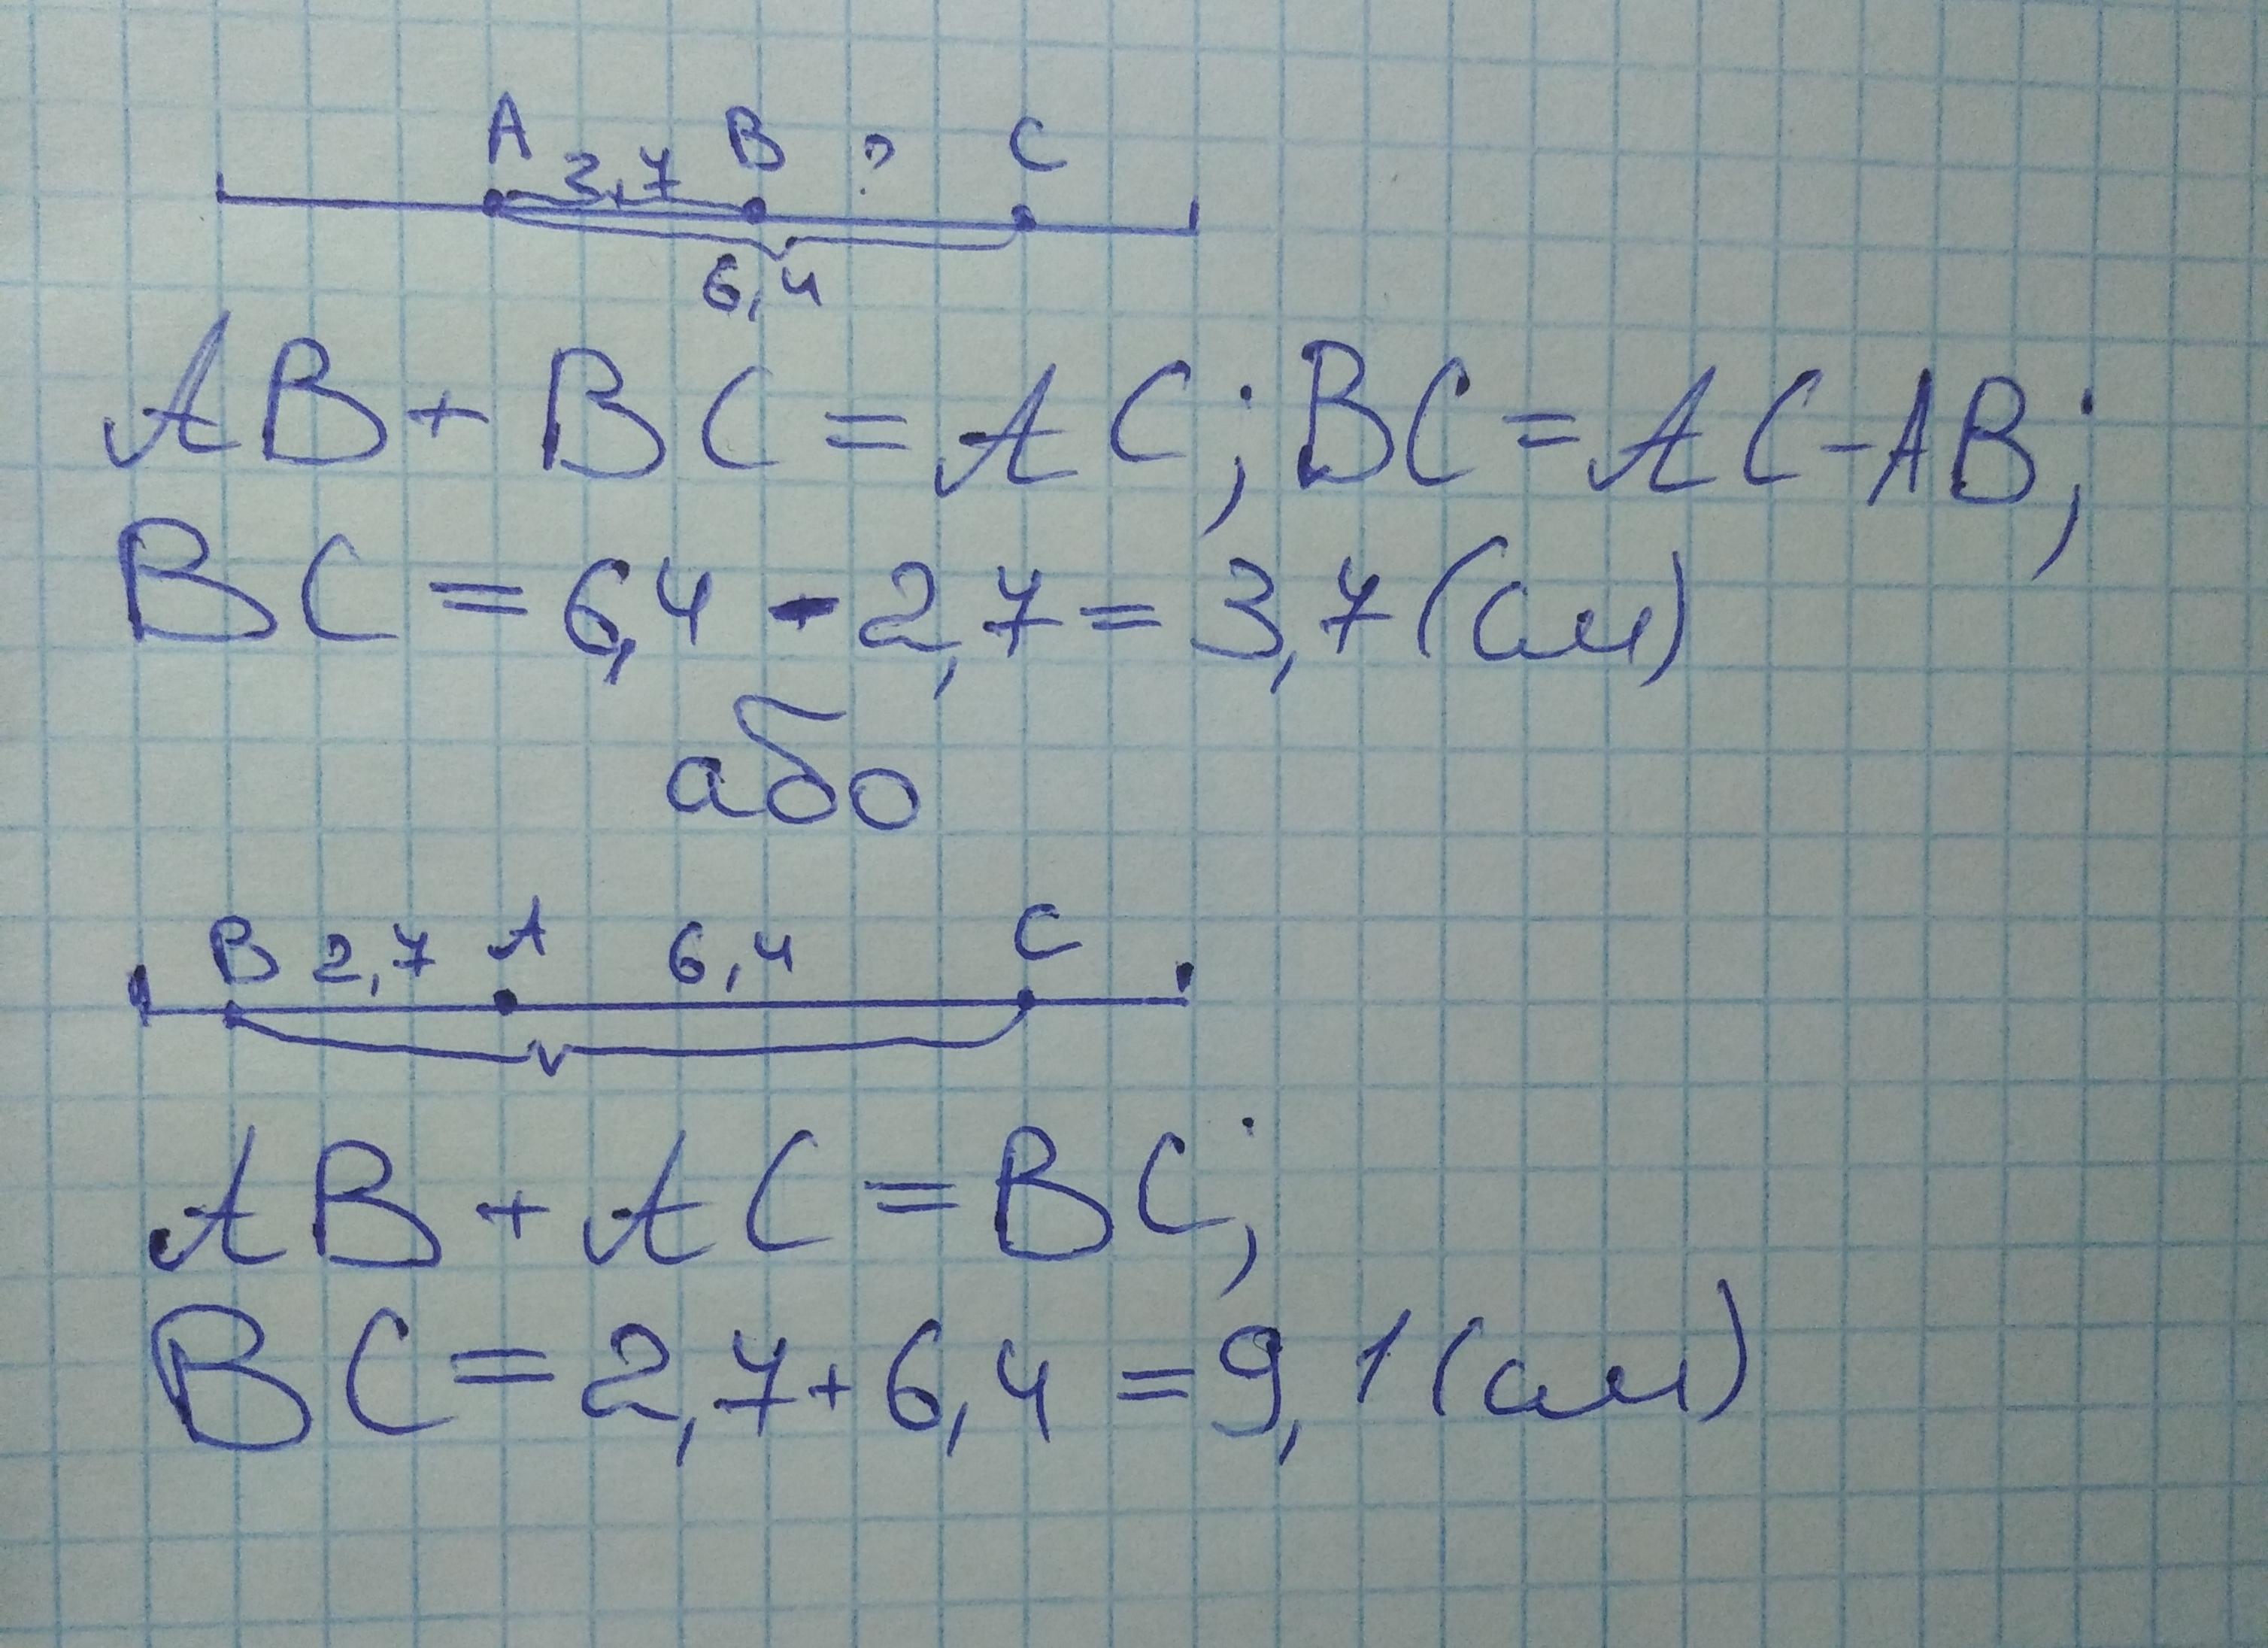 A 2,7 B ? C
6,4
AB + BC = AC; BC = AC - AB;
BC = 6,4 - 2,7 = 3,7 (см)
або
B 2,7 A 6,4 C
AB + AC = BC;
BC = 2,7 + 6,4 = 9,1 (см)